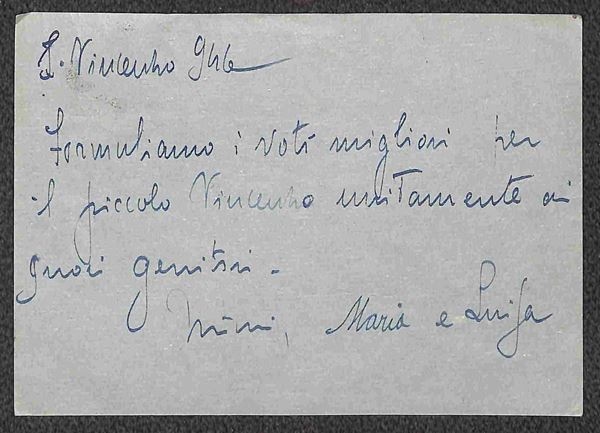 S. Vincenzo 946
Formuliamo i voti migliori per
il piccolo Vincenzo unitamente ai
suoi genitori -
Mimi, Maria e Luisa